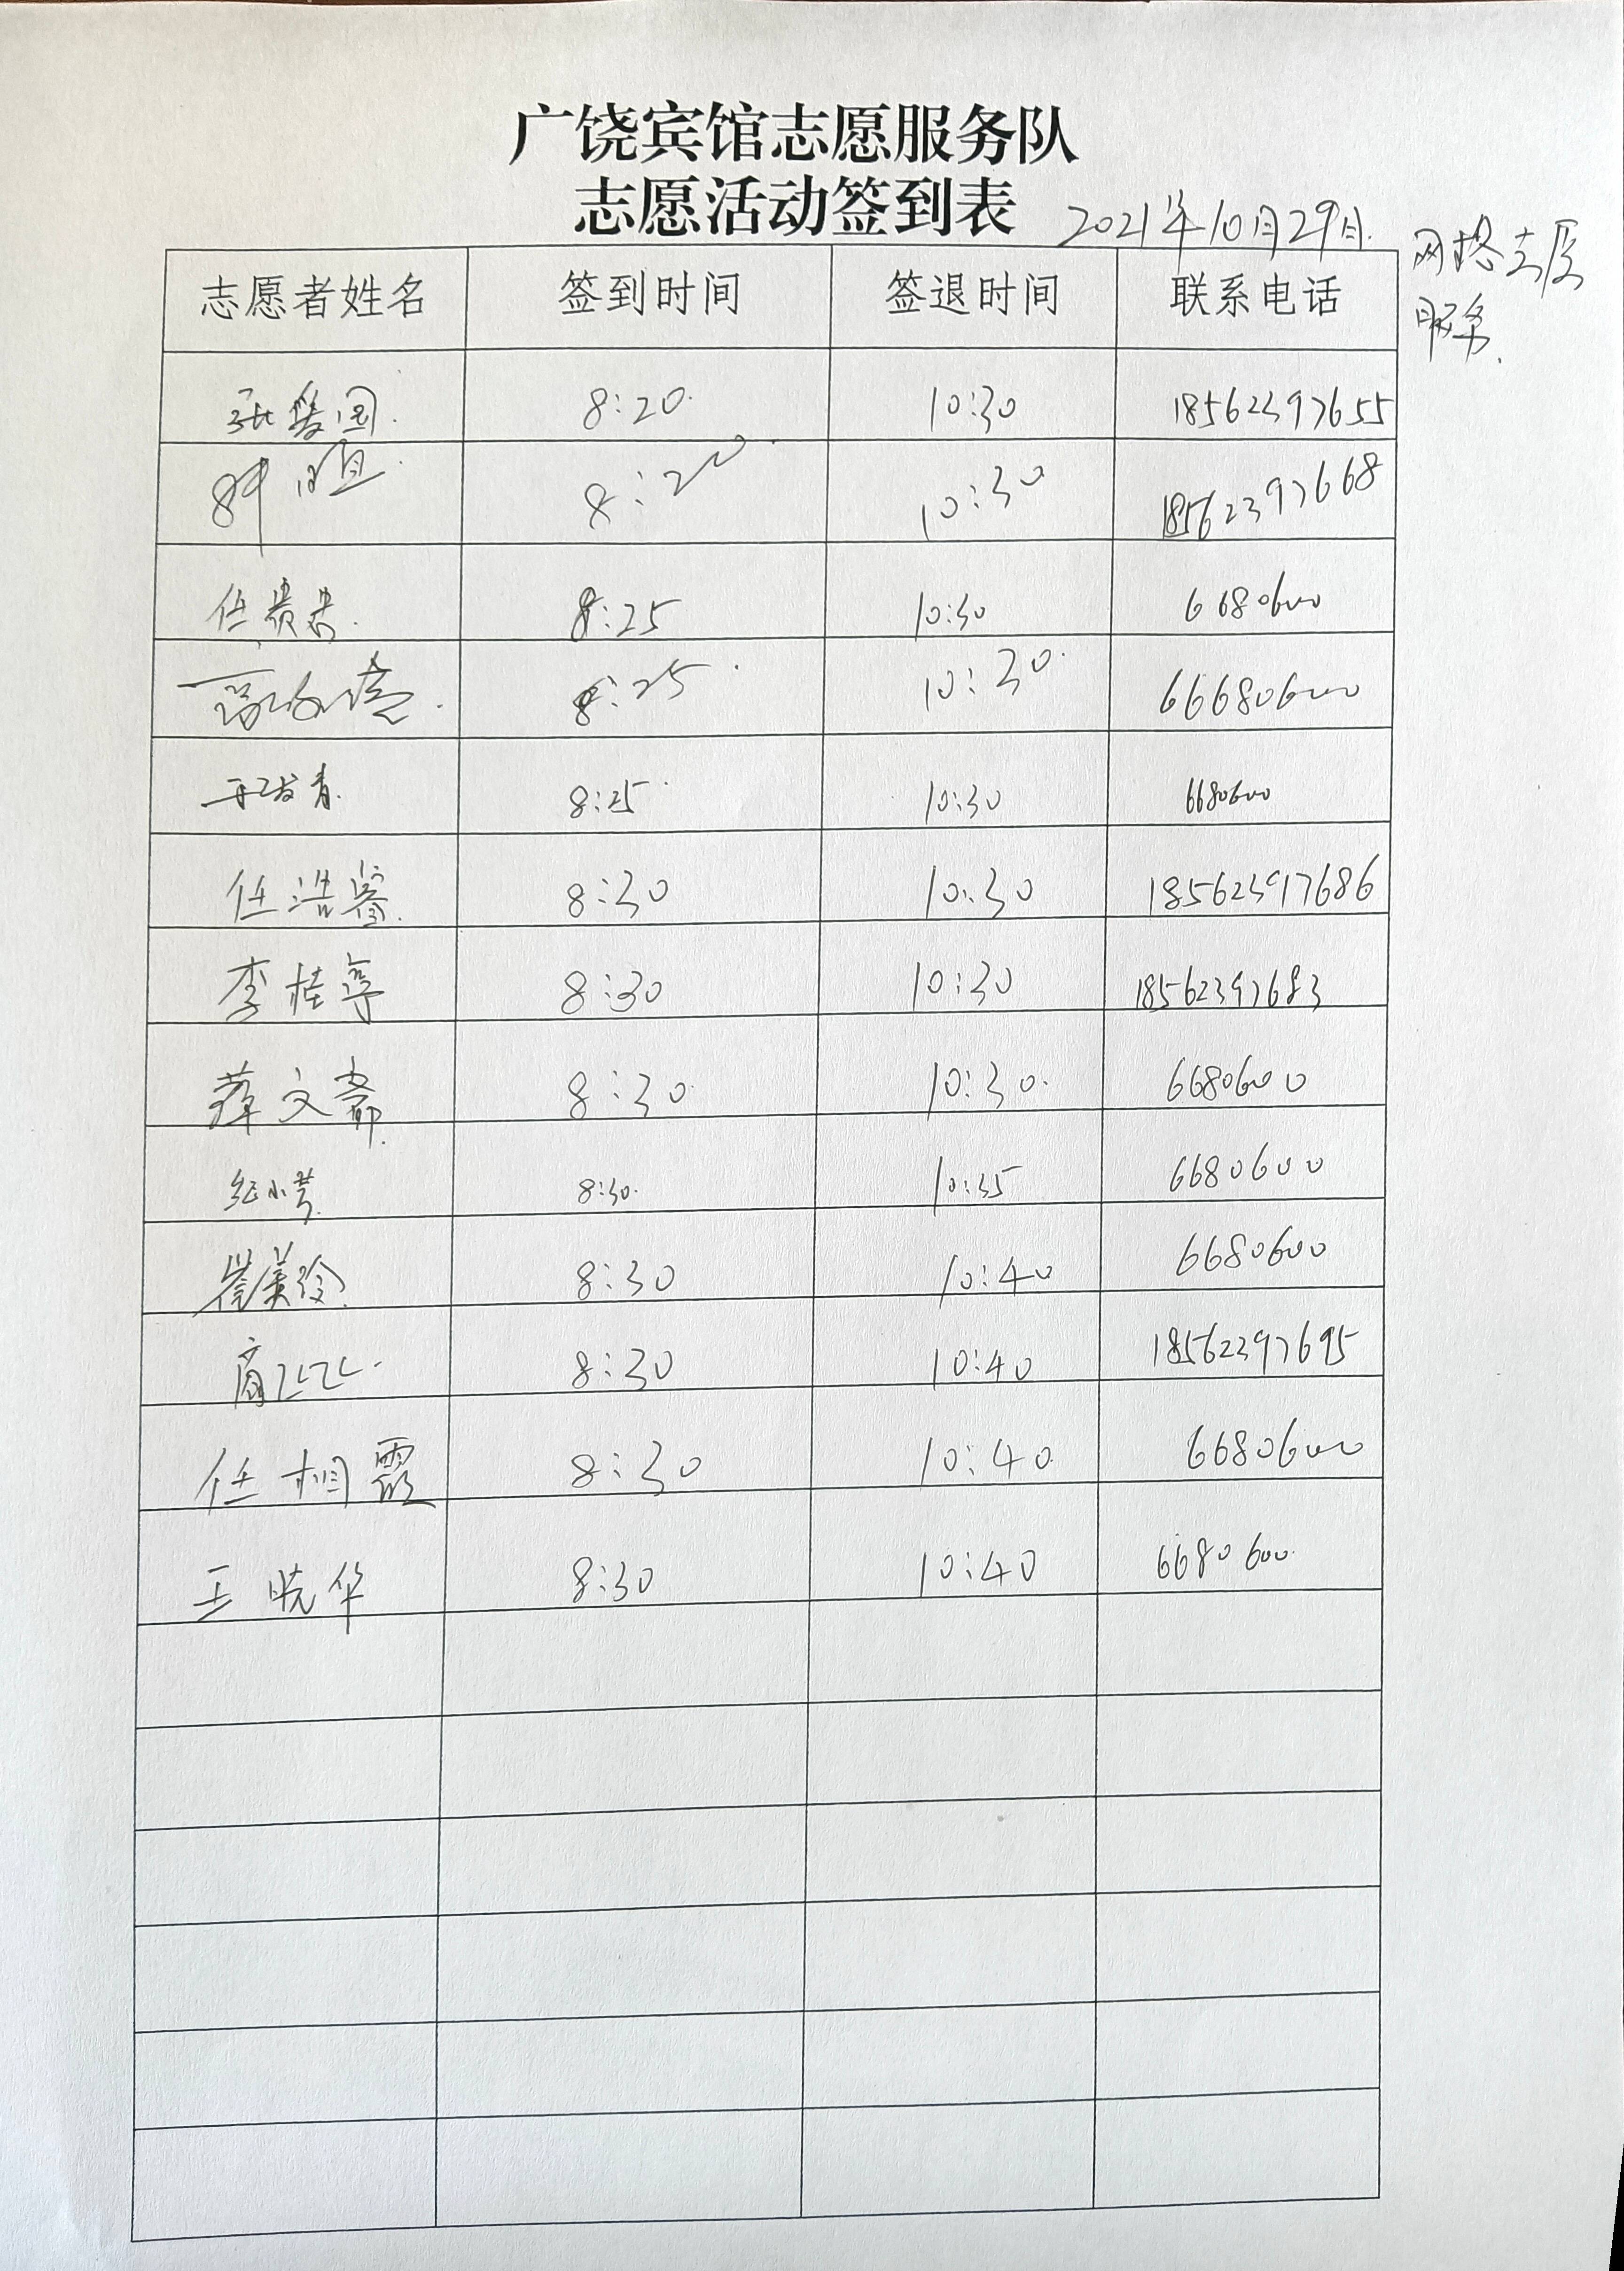 广饶宾馆志愿服务队
志愿活动签到表 2021年10月29日.
网格志愿
服务.
志愿者姓名 签到时间 签退时间 联系电话
张爱国. 8:20. 10:30 18562397655
8:20 10:30 18562397668
任贵 8:25 10:30 6680600
8:25 10:30 66680600
8:25 10:30 6680600
任浩睿. 8:30 10:30 18562397686
李桂亭 8:30 10:30 18562397683
薛文 8:30 10:30 6680600
纪小芳. 8:30. 10:35 6680600
崔美玲. 8:30 10:40 6680600
8:30 10:40 18562397695
任相霞 8:30 10:40 6680600
王晓华 8:30 10:40 6680600